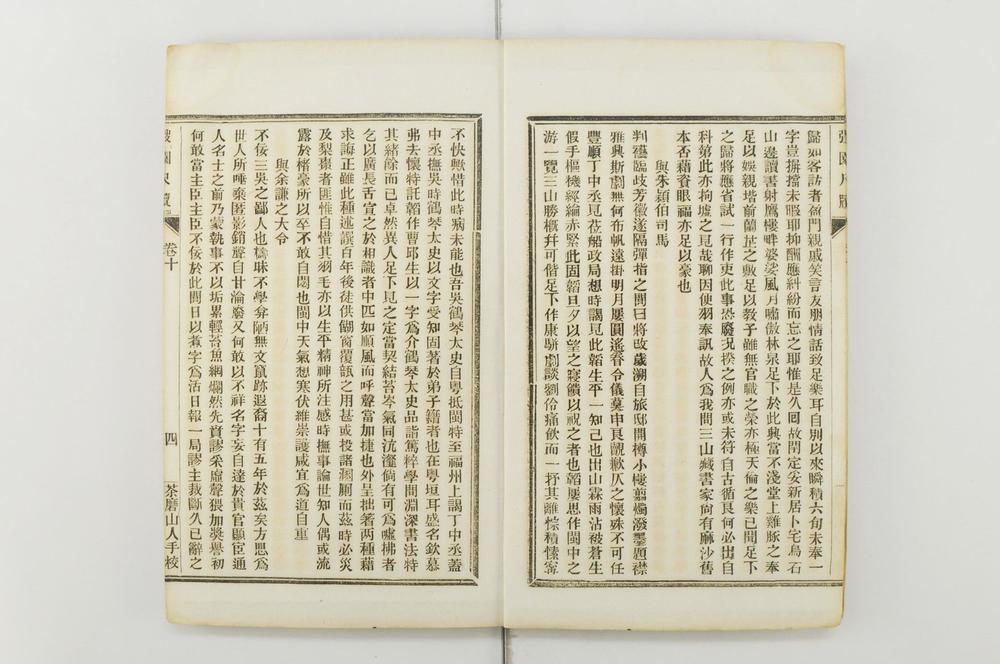 弢園尺牘
歸如客訪者盈門親戚笑言友朋情話致足樂耳自別以來瞬積六旬未奉一
字豈摒擋未暇耶抑酬應糾紛而忘之耶惟是久囘故閈定妥新居卜宅烏石
山邊讀書射鷹樓畔婆娑風月嘯傲林泉足下於此興當不淺堂上雞豚之奉
足以娛親堦前蘭茁之敷足以敎子雖無官職之榮亦極天倫之樂已聞足下
之歸將應省試一行作吏此事恐廢况揆之例亦或未符自古循良何必出自
科第此亦拘墟之見哉聊因使羽奉訊故人爲我問三山藏書家尙有麻沙舊
本否藉資眼福亦足以豪也
與朱穎伯司馬
判襼臨歧芳徽遂隔彈指之間曰將改歲溯自旅邸開樽小樓翦燭潑墨題襟
雅興斯劇無何布帆遠掛明月屢圓遙眷令儀莫申良覿歉仄之懷殊不可任
豐順丁中丞見莅船政局想時謁見此韜生平一知己也出山霖雨沾被蒼生
假手樞機經綸亦緊此固韜旦夕以望之寢饋以祝之者也韜屢思作閩中之
游一覽三山勝槪幷可偕足下作康駢劇談劉伶痛飲而一抒其離悰積愫寗
不快歟惜此時病未能也吾吳鶴琴太史自粵抵閩特至福州上謁丁中丞蓋
中丞撫吳時鶴琴太史以文字受知固著於弟子籍者也在粵垣耳盛名欽慕
弗去懷特託韜作曹邱生以一字爲介鶴琴太史品詣篤粹學問淵深書法特
其緖餘而已卓然異人足下見之定當契結苔岑氣同沆瀣倘有可爲噓拂者
乞以廣長舌宣之於相識者中匹如順風而呼聲當加捷也外呈拙著兩種藉
求誨正雖此種述譔百年後徒供餬窗覆瓿之用甚或投諸溷厠而茲時必災
及梨棗者匪惟自惜其羽毛亦以生平精神所注感時撫事論世知人偶或流
露於楮豪所以卒不敢自閟也閩中天氣想寒伏維崇護咸宜爲道自重
與余謙之大令
不佞三吳之鄙人也檮昧不學弇陋無文竄跡遐裔十有五年於茲矣方思爲
世人所唾棄匿影銷聲自甘淪廢又何敢以不祥名字妄自達於貴官顯臣通
人名士之前乃蒙執事不以垢累輕苔魚網爛然先賁謬采虛聲猥加奬譽初
何敢當主臣主臣不佞於此間日以煮字爲活日報一局謬主裁斷久已辭之
弢園尺牘
卷十
四
茶磨山人手校